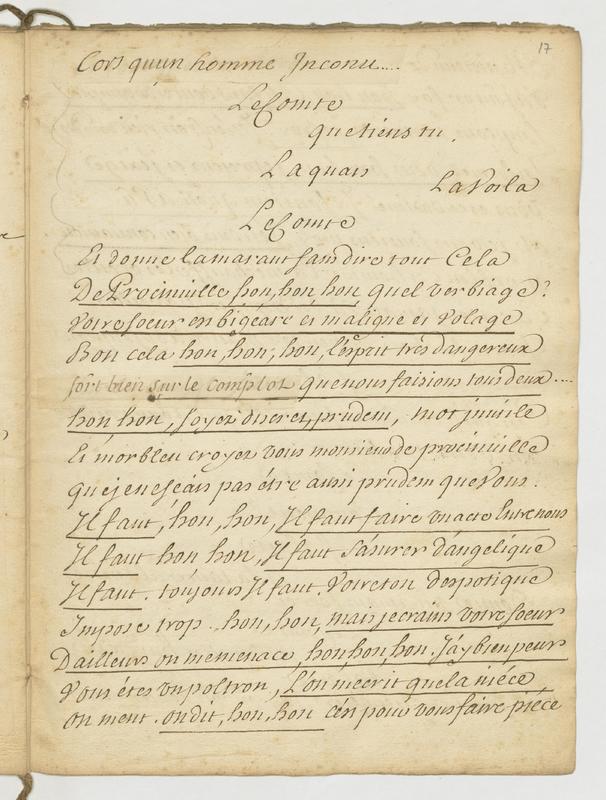 17
Lors qu'un homme Inconu....
Le Comte
que tiens tu.
Laquais
La Voila
Le Comte
Et donne la maraut sans dire tout Cela
De Procinville hon, hon, hon, quel verbiage?
Votre soeur en bigéare et maligne et Volage
Bon cela hon, hon, hon, l'esprit tres dangereux
fort bien sur le complot que nous faisions tous deux....
hon hon, soyez discret, prudem, mot inutile
Et morbleu croyez vous monsieur de procinville
que je ne scais pas étre aussi prudem que Vous.
Il faut, hon, hon, Il faut faire un acte Entre nous
Il faut hon hon, Il faut s'asurer d'angelique
Il faut. toujours Il faut. Votre ton despotique
Impose trop. hon, hon, mais je crains votre soeur
D'ailleurs on me menace, hon, hon, hon, J'ay bien peur
Vous étes un poltron, L'on m'ecrit que la niéce
on ment. on dit, hon, hon c'est pour vous faire piéce